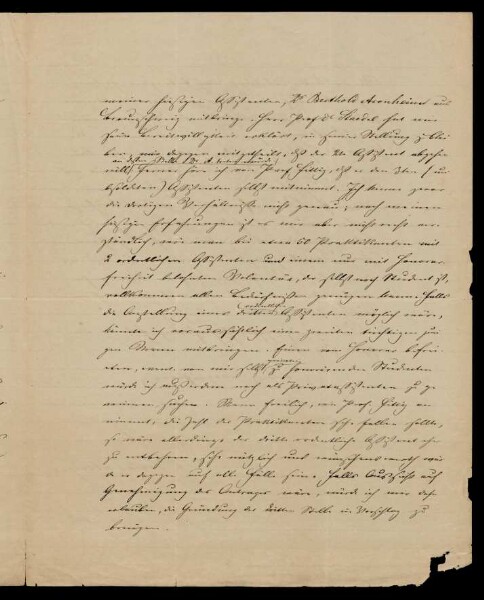 meiner hiesigen Assistenten, Dr Berthold Aronheim aus
Braunschweig mitbringe. Herr Prof. Dr Staedel hat nun
seine Bereitwilligkeit erklärt, in seiner Stellung zu blei-
ben, mir dagegen mitgetheilt, daß der 2te Assistent abgehen
an dessen Stelle Dr A. treten würde
will. Ferner höre ich von Prof. Hüfner, daß er den 3ten (un-
besoldeten) Assistenten selbst mitnimmt. Ich kenne zwar
die dortigen Verhältnisse nicht genau; nach meinen
hiesigen Erfahrungen ist es mir aber nicht recht ver-
ständlich, wie man bei etwa 60 Praktikanten mit
2 ordentlichen Assistenten und einem nur mit Honorar-
freiheit belohnten Volontär, der selbst noch Student ist,
vollkommen allen Bedürfnissen genügen kann. Falls
ordentlichen
die Anstellung eines dritten Assistenten möglich wäre,
könnte ich voraussichtlich einen zweiten tüchtigen jun-
gen Mann mitbringen. Einen von Honorar befrei-
ten, event. von mir selbst zu honorirenden Studenten
würde ich außerdem noch als Privatassistenten zu ge-
winnen suchen. Wenn freilich, wie Prof. an-
nimmt, die Zahl der Praktikanten sehr fallen sollte,
so wäre allerdings der dritte ordentliche Assistent eher
zu entbehren, sehr nützlich und wünschenswerth wür-
de er dagegen auf alle Fälle sein. Falls Aussicht auf
Genehmigung des Antrages wäre, würde ich mir daher
erlauben, die Gründung der dritten Stelle in Vorschlag zu
bringen.